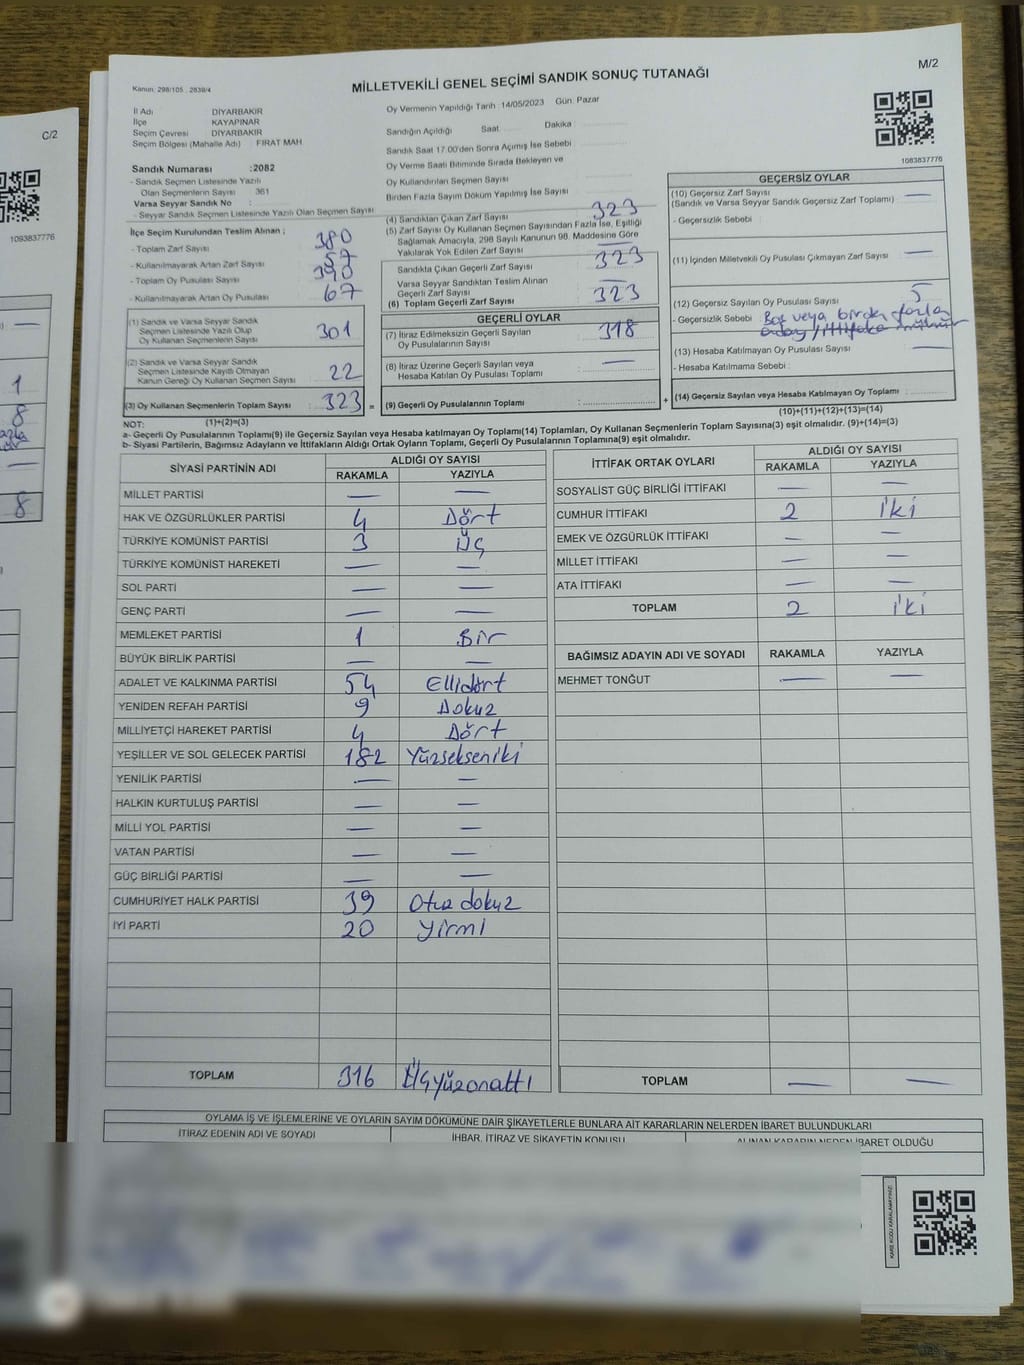 C/2
1093837776
1
8
8
Kanun. 298/105 . 2839/4
MİLLETVEKİLİ GENEL SEÇİMİ SANDIK SONUÇ TUTANAĞI
M/2
1083837776
İl Adı DİYARBAKIR
İlçe KAYAPINAR
Seçim Çevresi : DİYARBAKIR
Seçim Bölgesi (Mahalle Adı) FIRAT MAH
Sandık Numarası :2082
- Sandık Seçmen Listesinde Yazılı
Olan Seçmenlerin Sayısı 361
Varsa Seyyar Sandık No :
- Seyyar Sandık Seçmen Listesinde Yazılı Olan Seçmen Sayısı
Oy Vermenin Yapıldığı Tarih 14/05/2023 Gün: Pazar
Sandığın Açıldığı Saat Dakika :
Sandık Saat 17.00'den Sonra Açımış İse Sebebi
Oy Verme Saati Bitiminde Sırada Bekleyen ve
Oy Kullandırılan Seçmen Sayısı
Birden Fazla Sayım Döküm Yapılmış İse Sayısı
İlçe Seçim Kurulundan Teslim Alınan ;
- Toplam Zarf Sayısı : 380
- Kullanılmayarak Artan Zarf Sayısı : 57
- Toplam Oy Pusulası Sayısı 390
- Kullanılmayarak Artan Oy Pusulası 67
(1) Sandık ve Varsa Seyyar Sandık
Seçmen Listesinde Yazılı Olup
Oy Kullanan Seçmenlerin Sayısı 301
(2) Sandık ve Varsa Seyyar Sandık
Seçmen Listesinde Kayıtlı Olmayan
Kanun Gereği Oy Kullanan Seçmen Sayısı 22
(3) Oy Kullanan Seçmenlerin Toplam Sayısı : 323 =
(1)+(2)=(3)
(4) Sandıktan Çıkan Zarf Sayısı 323
(5) Zarf Sayısı Oy Kullanan Seçmen Sayısından Fazla İse, Eşitliği
Sağlamak Amacıyla, 298 Sayılı Kanunun 98. Maddesine Göre
Yakılarak Yok Edilen Zarf Sayısı
Sandıkta Çıkan Geçerli Zarf Sayısı 323
Varsa Seyyar Sandıktan Teslim Alınan
Geçerli Zarf Sayısı
(6) Toplam Geçerli Zarf Sayısı 323
GEÇERLİ OYLAR
(7) İtiraz Edilmeksizin Geçerli Sayılan
Oy Pusulalarının Sayısı 318
(8) İtiraz Üzerine Geçerli Sayılan veya
Hesaba Katılan Oy Pusulası Toplamı
(9) Geçerli Oy Pusulalarının Toplamı +
GEÇERSİZ OYLAR
(10) Geçersiz Zarf Sayısı
(Sandık ve Varsa Seyyar Sandık Geçersiz Zarf Toplamı)
- Geçersizlik Sebebi :
(11) İçinden Milletvekili Oy Pusulası Çıkmayan Zarf Sayısı
(12) Geçersiz Sayılan Oy Pusulası Sayısı 5
- Geçersizlik Sebebi Boş veya birden fazla
(13) Hesaba Katılmayan Oy Pusulası Sayısı
- Hesaba Katılmama Sebebi :
(14) Geçersiz Sayılan veya Hesaba Katılmayan Oy Toplamı
(10)+(11)+(12)+(13)=(14)
NOT:
a- Geçerli Oy Pusulalarının Toplamı(9) ile Geçersiz Sayılan veya Hesaba katılmayan Oy Toplamı(14) Toplamları, Oy Kullanan Seçmenlerin Toplam Sayısına(3) eşit olmalıdır. (9)+(14)=(3)
b- Siyasi Partilerin, Bağımsız Adayların ve İttifakların Aldığı Ortak Oyların Toplamı, Geçerli Oy Pusulalarının Toplamına(9) eşit olmalıdır.
SİYASİ PARTİNİN ADI ALDIĞI OY SAYISI
RAKAMLA YAZIYLA
MİLLET PARTİSİ — —
HAK VE ÖZGÜRLÜKLER PARTİSİ 4 Dört
TÜRKİYE KOMÜNİST PARTİSİ 3 Üç
TÜRKİYE KOMÜNİST HAREKETİ — —
SOL PARTİ — —
GENÇ PARTİ — —
MEMLEKET PARTİSİ 1 Bir
BÜYÜK BİRLİK PARTİSİ — —
ADALET VE KALKINMA PARTİSİ 54 Ellidört
YENİDEN REFAH PARTİSİ 9 Dokuz
MİLLİYETÇİ HAREKET PARTİSİ 4 Dört
YEŞİLLER VE SOL GELECEK PARTİSİ 182 Yüzsekseniki
YENİLİK PARTİSİ — —
HALKIN KURTULUŞ PARTİSİ — —
MİLLİ YOL PARTİSİ — —
VATAN PARTİSİ — —
GÜÇ BİRLİĞİ PARTİSİ — —
CUMHURİYET HALK PARTİSİ 39 Otuz dokuz
İYİ PARTİ 20 Yirmi
TOPLAM 316 Üçyüzonaltı
İTTİFAK ORTAK OYLARI ALDIĞI OY SAYISI
RAKAMLA YAZIYLA
SOSYALİST GÜÇ BİRLİĞİ İTTİFAKI — —
CUMHUR İTTİFAKI 2 iki
EMEK VE ÖZGÜRLÜK İTTİFAKI — —
MİLLET İTTİFAKI — —
ATA İTTİFAKI — —
TOPLAM 2 iki
BAĞIMSIZ ADAYIN ADI VE SOYADI RAKAMLA YAZIYLA
MEHMET TONĞUT — —
TOPLAM — —
OYLAMA İŞ VE İŞLEMLERİNE VE OYLARIN SAYIM DÖKÜMÜNE DAİR ŞİKAYETLERLE BUNLARA AİT KARARLARIN NELERDEN İBARET BULUNDUKLARI
İTİRAZ EDENİN ADI VE SOYADI İHBAR, İTİRAZ VE ŞİKAYETİN KONUSU ALINAN KARARIN NEDEN İBARET OLDUĞU
KARE KODU KARALAMAYINIZ!